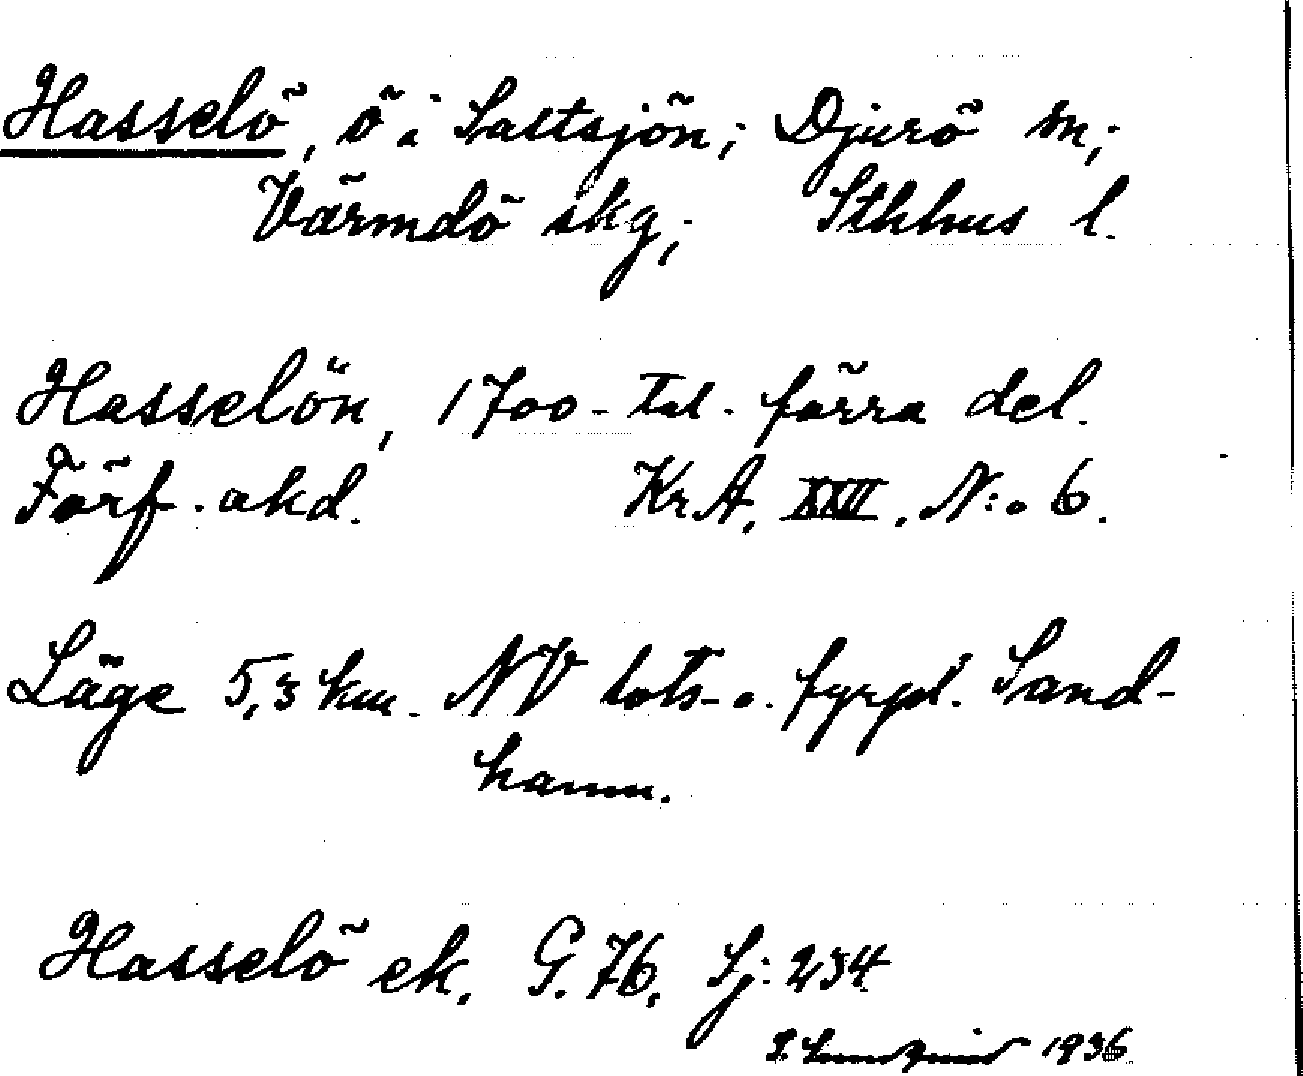 Hasselö, ö i Saltsjön; Djurö sn;
Värmdö skg; Sthlms l.
Hasselön, 1700-tal. förra del.
Förf. akd. KrA. XXII. N:o 6.
Läge 5,3 km. NV lots- o. fyrpl. Sand-
hamn.
Hasselö ek. G. 76, Sj: 234
S. Lundqvist 1936